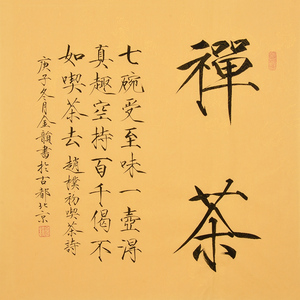 禪茶
七碗受至味一壺得
真趣空持百千偈不
如喫茶去趙樸初喫茶詩
庚子冬月金韻書於古都北京